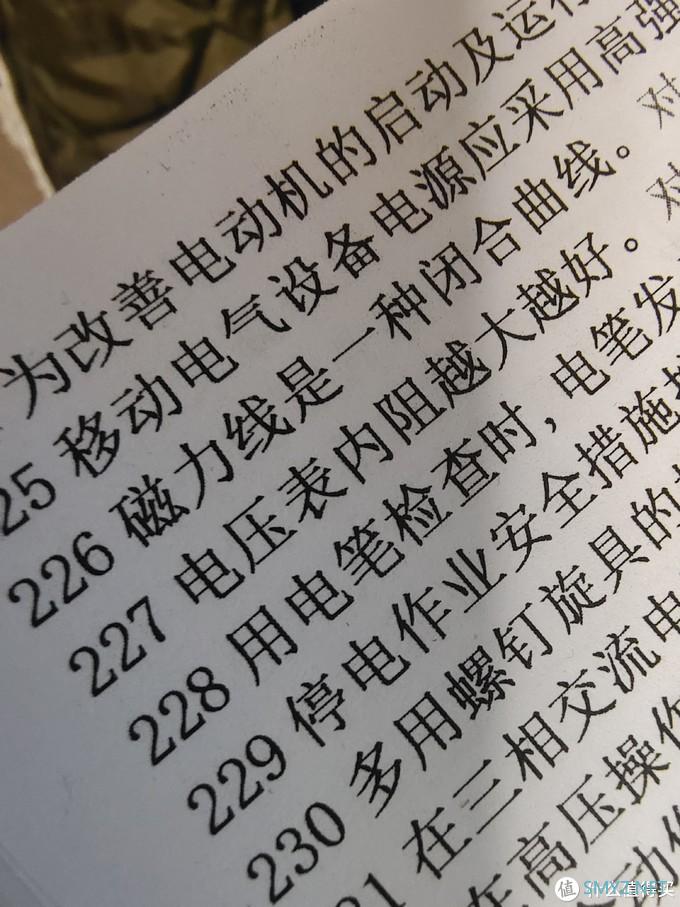 为改善电动机的启动及运行
25 移动电气设备电源应采用高强
226 磁力线是一种闭合曲线。对
227 电压表内阻越大越好。对
228 用电笔检查时，电笔发
229 停电作业安全措施按
230 多用螺钉旋具的
31 在三相交流电
在高压操作
动作
值 什么值得买
SMYZ.NET